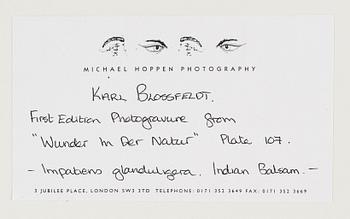 MICHAEL HOPPEN PHOTOGRAPHY
KARL BLOSSFELDT.
First Edition Photogravure from
"Wunder In Der Natur" Plate 107.
- Impatiens glanduligera. Indian Balsam. -
3 JUBILEE PLACE, LONDON SW3 3TD TELEPHONE: 0171 352 3649 FAX: 0171 352 3669